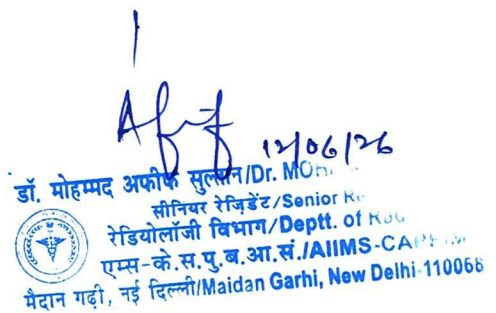 Afif
12/06/26
डॉ. मोहम्मद अफीक सुल्तान/Dr. MOH
सीनियर रेज़िडेंट/Senior Re
रेडियोलॉजी विभाग/Deptt. of
एम्स-के.स.पु.ब.आ.सं./AIIMS-CAPF
मैदान गढ़ी, नई दिल्ली/Maidan Garhi, New Delhi-110068